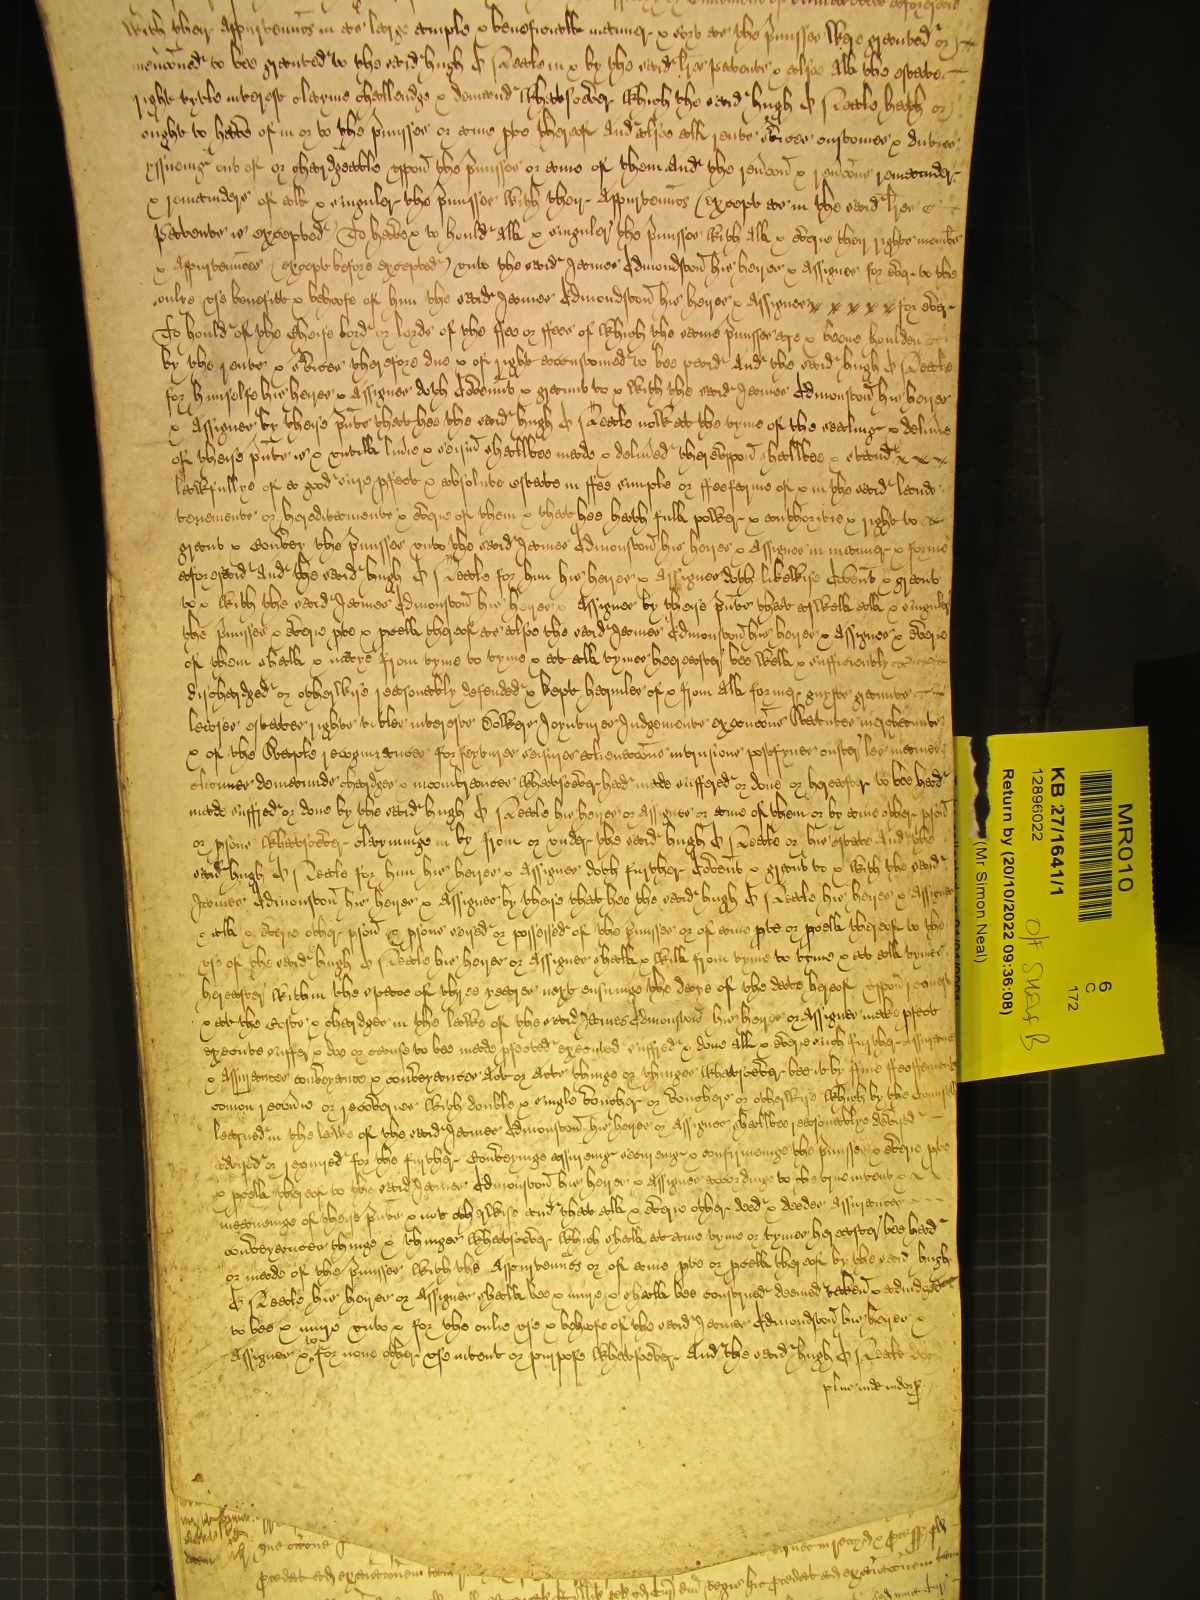 with their Appurtenncs in as large ample & beneficiall manner & sort as the pmisses were graunted or
menconed to bee graunted to the said Hugh O Neale in & by the said lres patents & alsoe All the estate
right tytle interest clayme challendge & demaund whatsoever which the said Hugh O Neale hath or
ought to have of in or to the pmisses or anie pte thereof And alsoe all rents svices customes & duties
yssueing out of or chardgeable uppon the pmisses or anie of them And the revcon & revcons remainder
& remainders of all & singuler the pmisses with their Appurtenncs (except as in the said lres
Patents is excepted) To have & to hould All & singuler the pmisses with all & everie their rights members
& Appurtennces (except before excepted) unto the said James Edmonstoun his heires & Assignes for ever to the
onlie use benefitt & behoofe of him the said James Edmondstoun his heires & Assignes x x x x x for ever
To hould of the Cheife lord or lords of the fee or ffees of which the same pmisses are & beene houlden
by the rents & svices therefore due & of right accustomed to bee paid And the said Hugh O Neale
for himselfe his heires & Assignes doth Covennt & graunt to & with the said James Edmonstoun his heires
& Assignes by theise pnts that hee the said Hugh O Neale now at the tyme of the sealing & delivie
of theise pnts is & untill livie & seisin shalbee made & delived thereuppon shalbee & stand x x x
lawfullye of a good sure pfect & absolute estate in ffee simple or ffeefarme of & in the said lands
tenements or hereditaments & everie of them & that hee hath full power & authoritie & right to
graunt & Convey the pmisses unto the said James Edmonstoun his heires & Assignes in manner & forme
aforesaid And the said Hugh O Neale for him his heires & Assignes doth likewise Covent & graunt
to & with the said James Edmonstoun his heires & Assignes by theise pnts that aswell all & singuler
the pmisses & everie pte & pcell thereof as alsoe the said James Edmonstoun his heires & Assignes & everie
of them shall & maye from tyme to tyme & at all tymes hereafter bee well & sufficiently
dischardged or otherwise reasonably defended & kept harmles of & from All former guyfts graunts
leases estates rights titles interests Dowers Joyntures Judgements execucons Statutes merchaunts
& of the Staple recognizances forfeytures seisures alienacons intrusions postfynes ousters les maines
claimes demaunds chardges & incombrances whatsoever had made suffered or done or hereafter to bee had
made suffred or done by the said Hugh O Neale his heires or Assignes or anie of them or by anie other pson
or psons whatsoever clayminge in by from or under the said Hugh O Neale or his estate And the
said Hugh O Neale for him his heires & Assignes doth further Covent & graunt to & with the said
James Edmonstoun his heires & Assignes by theise that hee the said Hugh O Neale his heires & Assignes
& all & everie other pson & psons seised or possessed of the pmisses or of anie pte or pcell thereof to the
use of the said Hugh O Neale his heires or Assignes shall & will from tyme to tyme & at all tymes
hereafter within the space of three yeares next ensuinge the date hereof uppon request
& at the Costs & chardges in the lawe of the said James Edmonstoun his heires or Assignes make pfect
execute suffer & doe or cause to bee made pfected executed suffred & done all & everie such further assurance
& Assurances conveyance & conveyances Act or Acts thinge or thinges whatsoever bee it by ffine ffeoffement
comon recovie or recoveries with double & single voucher or vouchers or otherwise which by the counsell
learned in the lawe of the said James Edmonstoun his heires or Assignes shalbee reasonablye devised
advised or required for the further Conveyinge assureing secureing & confirmeinge the pmisses & everie pte
& pcell thereof to the said James Edmonstoun his heires & Assignes accordinge to the true intent &
meaninge of theise pnts & not otherwise and that all & everie other deed & deedes Assurances
conveyances thinge & thinges whatsoever which shall at anie tyme or tymes hereafter bee had
or made of the pmisses with the Appurtennces or of anie pte or pcell thereof by the said Hugh
O Neale his heires or Assignes shall bee & inure & shall bee construed deemed taken & adiudged
to bee & inure unto & for the onlie use & behoofe of the said James Edmondstoun his heires &
Assignes & to for none other use intent or purpose whatsoever And the said Hugh O Neale
plus inde indors
que accone
pcedat ad execucionem
MR010
6
C
172
KB 27/1641/1
12896022
Off Shelf B
Return by (20/10/2022 09:36:08)
(Mr Simon Neal)